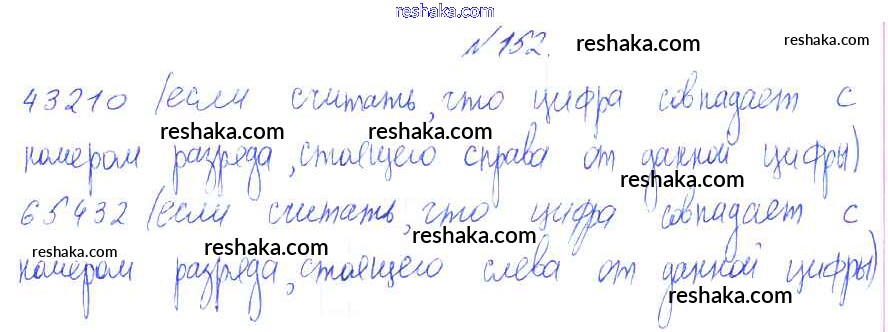 reshaka.com
№152. reshaka.com reshaka.com
43210 (если считать, что цифра совпадает с
reshaka.com reshaka.com reshaka.com
номером разряда, стоящего справа от данной цифры)
reshaka.com
65432 (если считать, что цифра совпадает с
reshaka.com reshaka.com reshaka.com
номером разряда, стоящего слева от данной цифры)
reshaka.com